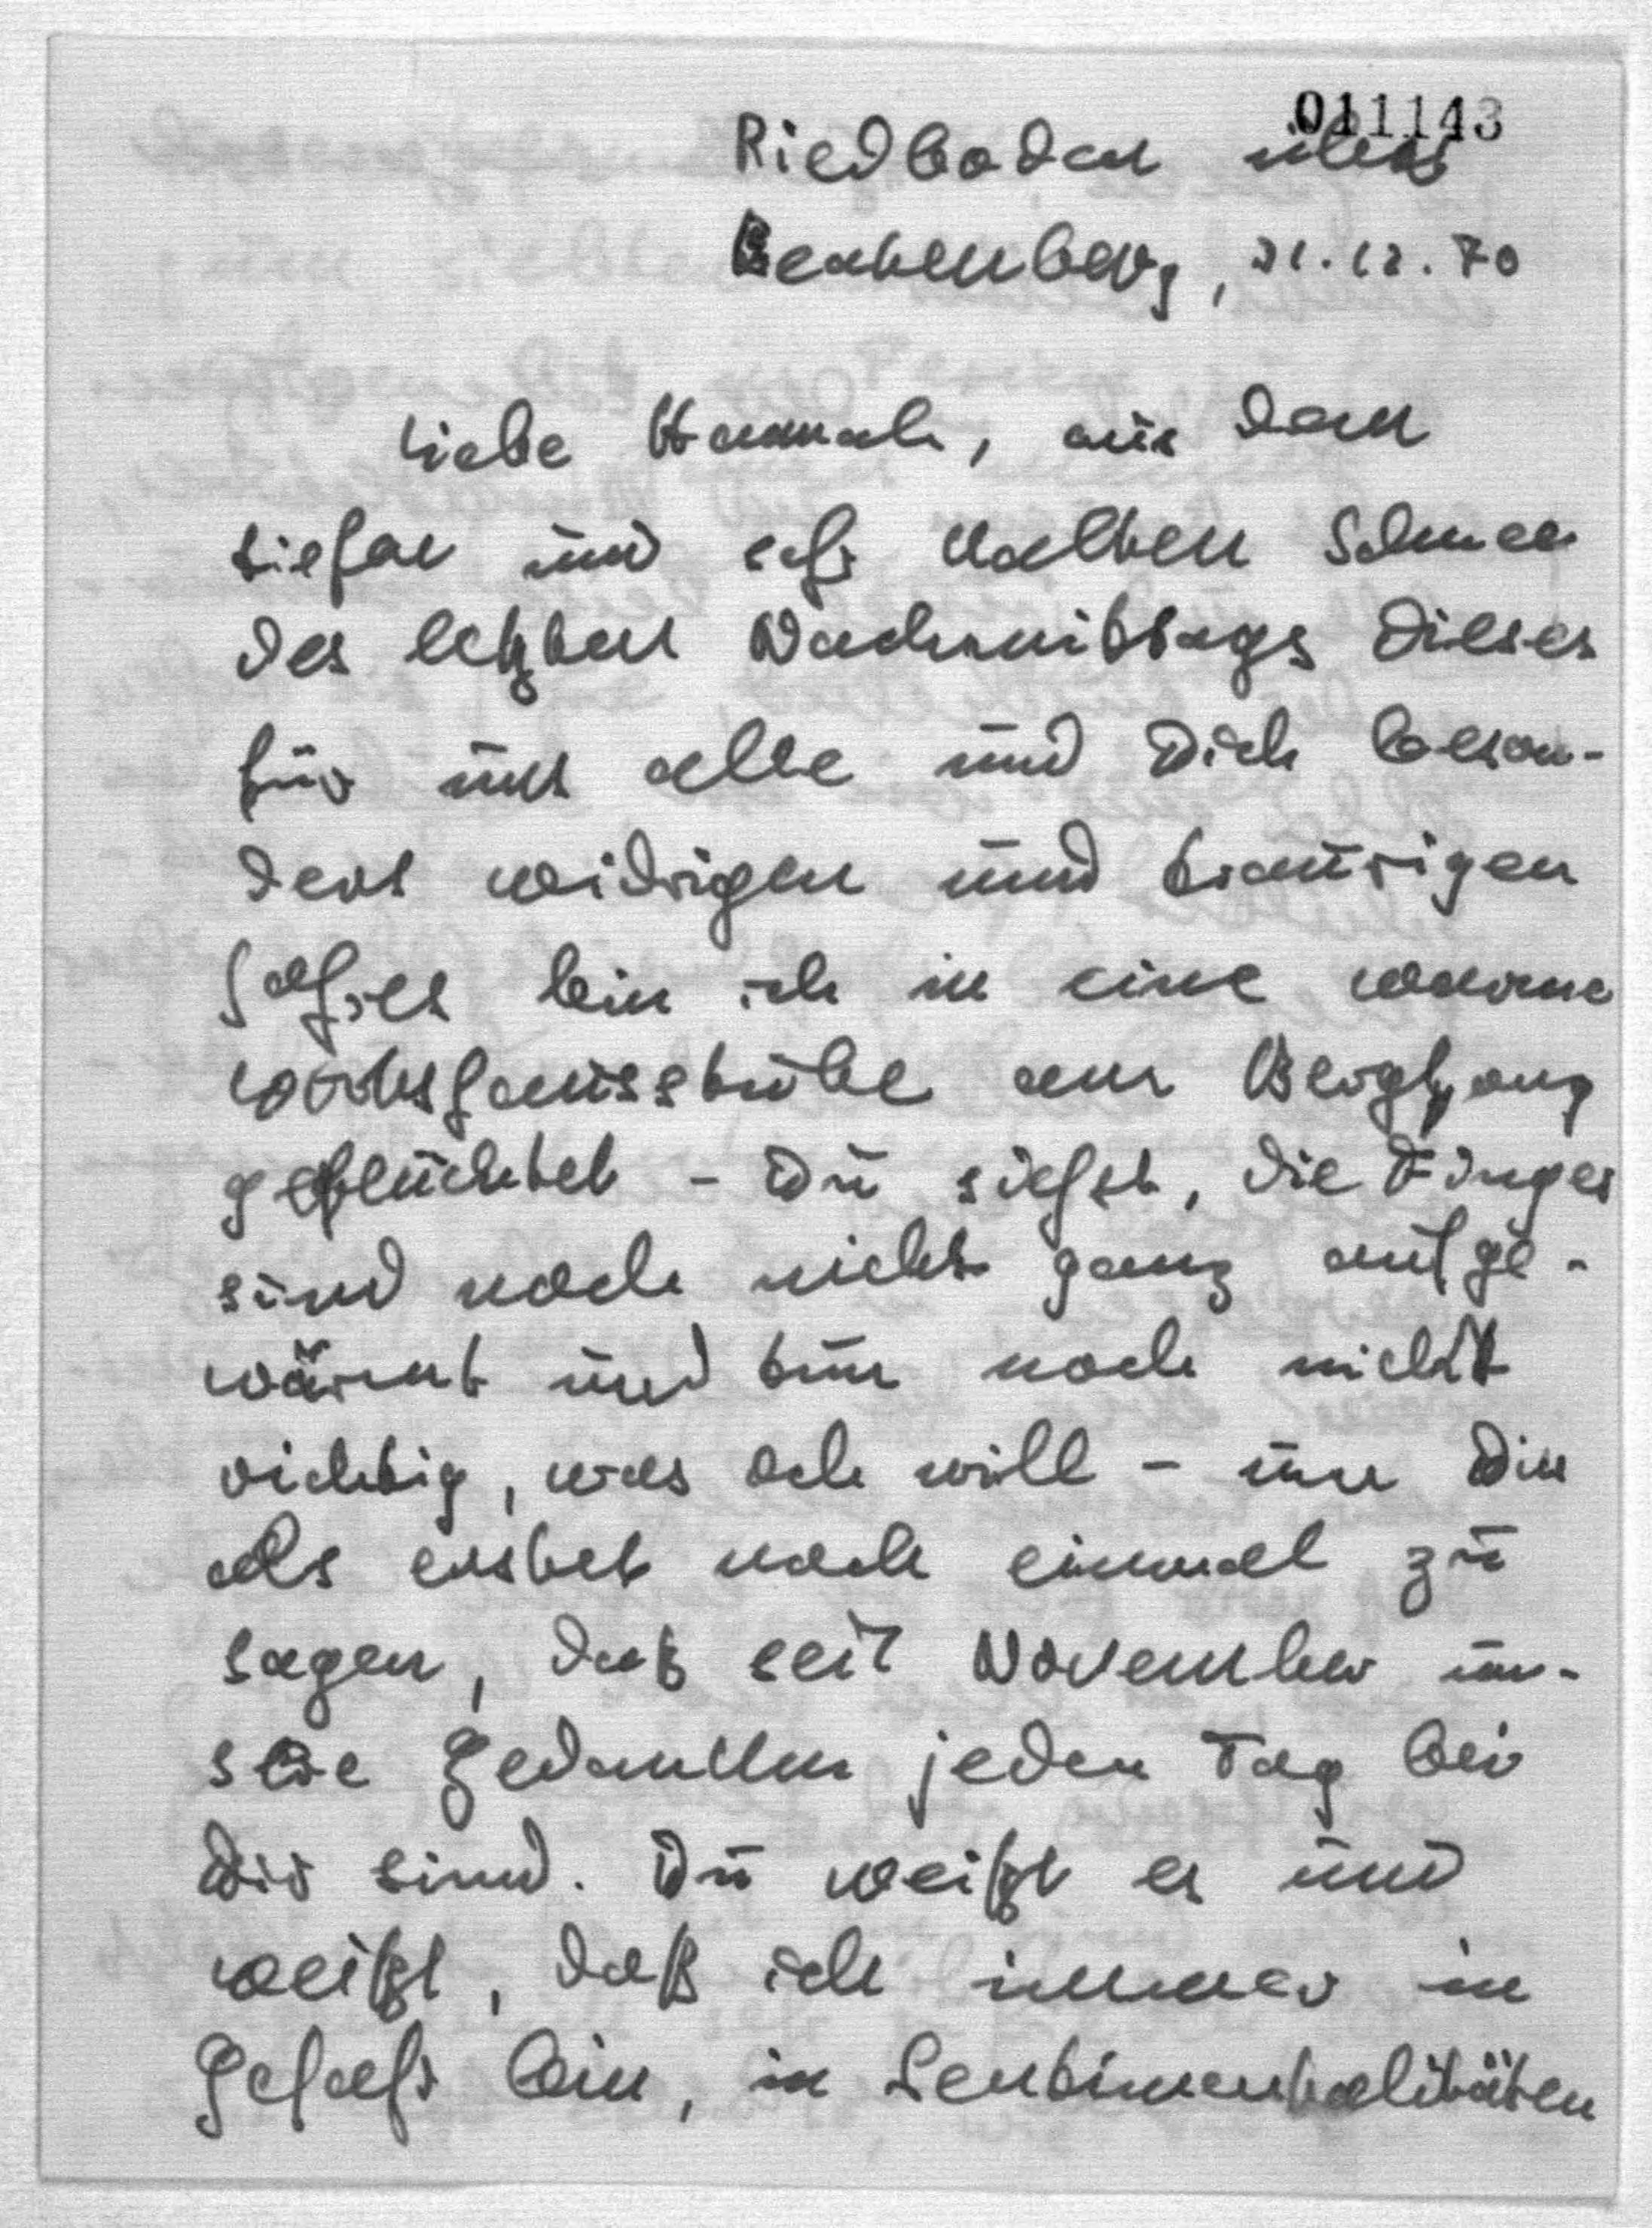 011143
Riedboden über
Beatenberg, 31.12.70
Liebe Hannah, aus dem
tiefen und sehr kalten Schnee
des letzten Nachmittags dieses
für uns alle und Dich beson-
ders widrigen und traurigen
Jahres bin ich in eine warme
Wirtshausstube am Berghang
geflüchtet - Du siehst, die Finger
sind noch nicht ganz aufge-
wärmt und tun noch nicht
richtig, was ich will - um Dir
als erstes noch einmal zu
sagen, daß seit November un-
sere Gedanken jeden Tag bei
Dir sind. Du weißt es und
weißt, daß ich immer in
Gefahr bin, in Sentimentalitäten